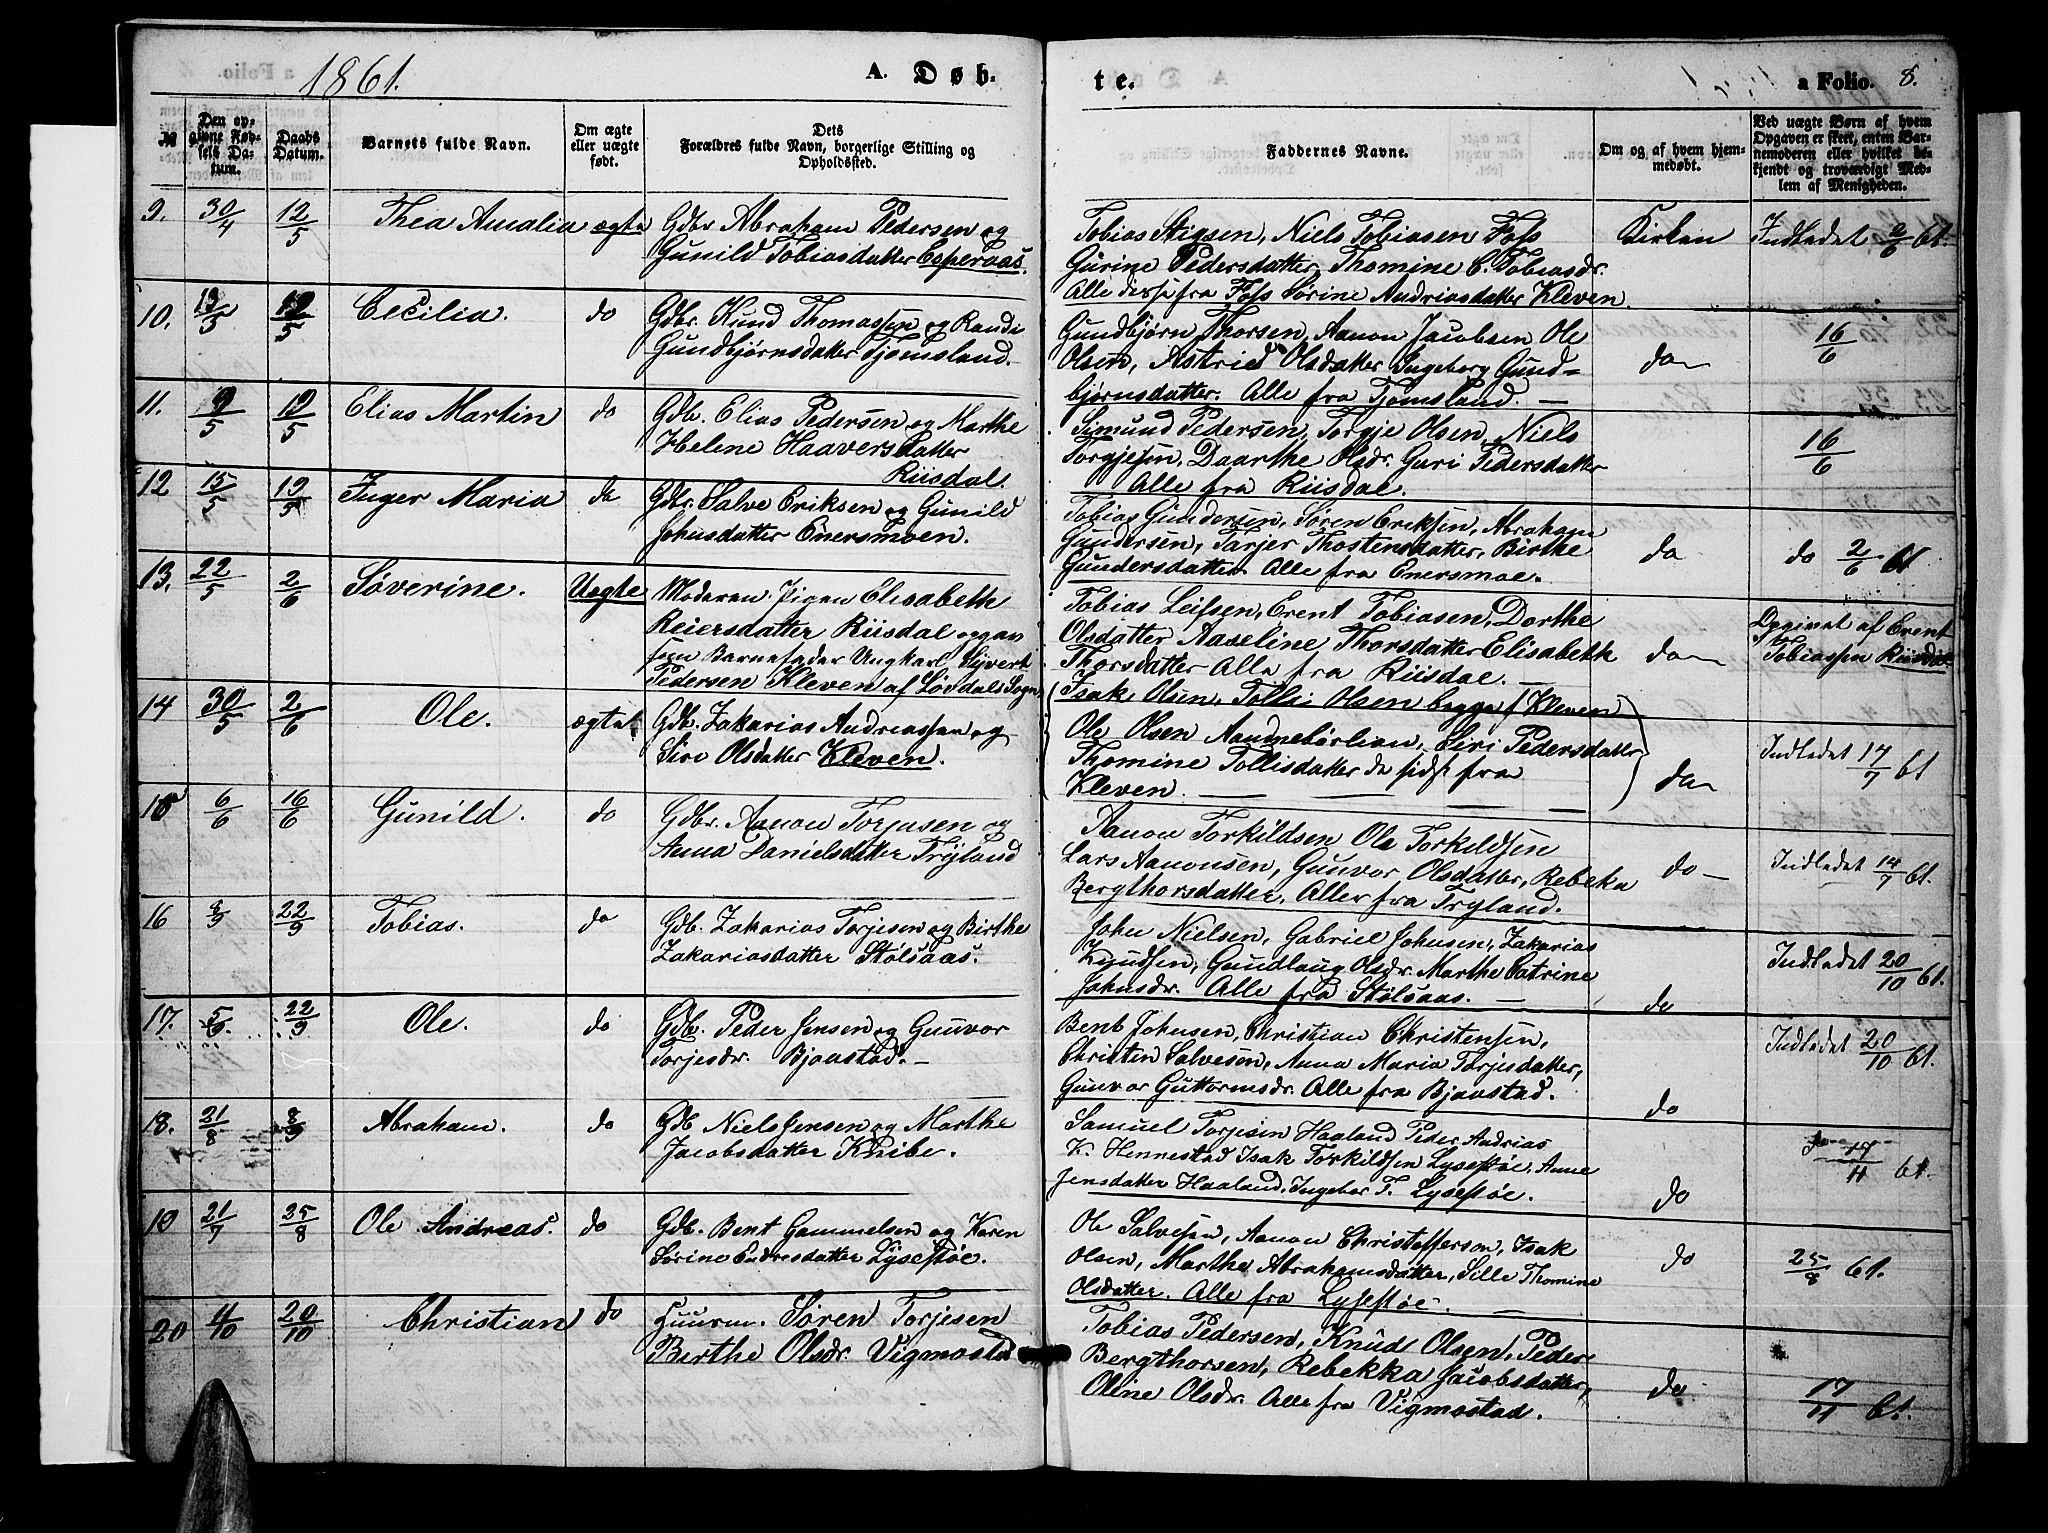 1861.
A. Døb-
te.
a Folio. 8.
№
Den op-
givne Fød-
sels Da-
tum.
Daabs
Datum.
Barnets fulde Navn.
Om ægte
eller uægte
født.
Dets
Forældres fulde Navn, borgerlige Stilling og
Opholdssted.
Faddernes Navne.
Om og af hvem hjem-
medøbt.
Ved uægte Børn af hvem
Opgaven er skeet, enten Bar-
nemoderen eller hvilket be-
kjendt og troværdigt Med-
lem af Menigheden.
9. 30/4 12/5 Thea Amalia ægte
Gdbr Abraham Pedersen og
Gunild Tobiasdatter Esperaas.
Tobias Stigsen, Niels Tobiasen Foss
Gurine Pedersdatter, Thomine C. Tobiasdr.
Alle disse fra Foss Sørine Andriasdatter Kleven.
Kirken
Indledet 2/6 61.
10. 13/5 19/5 Cecilia. do
Gdbr. Knud Thomassen og Randi
Gundbjørnsdatter Tjomsland.
Gundbjørn Thorsen, Aanon Jacobsen Ole
Olsen, Astrid Olsdatter Ingeborg Gund=
bjørnsdatter. Alle fra Tjomsland. —
do
16/6
11. 9/5 19/5 Elias Martin do
Gdb. Elias Pedersen og Marthe
Helene Haaversdatter
Riisdal.
Simund Pedersen, Torgje Olsen, Niels
Torgjesen, Daarthe Olsdr. Guri Pedersdatter
Alle fra Riisdal.
16/6
12 15/5 19/5 Inger Maria do
Gdbr. Salve Eriksen og Gunild
Johnsdatter Enersmoen.
Tobias Gundersen, Søren Eriksen, Abraham
Gundersen, Tarjer Thostensdatter, Birthe
Gundersdatter. Alle fra Enersmoe.
do
do 2/6 61
13. 22/5 2/6 Søverine. Uegte
Moderen Pigen Elisabeth
Reiersdatter Riisdal opgav
som Barnefader Ungkarl Syvert
Pedersen Kleven af Løvdals Sogn
Tobias Leifsen, Erent Tobiasen, Dorthe
Olsdatter Aaseline Thorsdatter Elisabeth
Thorsdatter Alle fra Riisdal. —
do
Opgivet af Erent
Tobiassen Riisdal
14 30/5 2/6 Ole. ægte
Gdb. Zakarias Andreassen og
Siri Olsdatter Kleven.
Isak Olsen, Tollis Olsen begge f Kleven
Ole Olsen Aandnebørlien, Siri Pedersdatter
Thomine Tollisdatter de sidst fra
Kleven. — — — —
do
Indledet 14/7 61
15 6/6 16/6 Gunild. do
Gdbr. Aanon Torjusen og
Anna Danielsdatter Tryland
Aanon Torkildsen Ole Torkildsen
Lars Aanonsen, Gunvor Olsdatter, Rebeka
Bergthorsdatter, Aller fra Tryland.
do —
Indledet 14/7 61.
16 8/9 22/9 Tobias. do
Gdb. Zakarias Torjesen og Birthe
Zakariasdatter Stølsaas.
John Nielsen, Gabriel Johnsen, Zakarias
Knudsen, Gundlaug Olsdr. Marthe Catrine
Johnsdr. Alle fra Stølsaas. —
do
Indledet 20/10 61.
17. 5/9. 22/9 Ole. do
Gdb. Peder Jensen og Gunvor
Torjesdr. Bjaastad. —
Bent Johnsen, Christian Christensen,
Christin Salvesen, Anna Maria Torjesdatter,
Gunvor Guttormsdr. Alle fra Bjaastad.
do
Indledet 20/10 61.
18. 21/8 8/9 Abraham. do
Gdb Niels Jensen og Marthe
Jacobsdatter Knibe.
Samuel Torjesen Haaland Peder Andrias
K. Hennestad Isak Torkildsen Lysestøe, Anne
Jensdatter Haaland, Ingebor T. Lysestøe.
do
17/11 61.
19 21/7 25/8 Ole Andreas. do
Gdb. Bent Gammelsen og Karen
Sørine Endresdatter Lysestøe.
Ole Salvesen, Aanon Christoffersen, Isak
Olsen, Marthe Abrahamsdatter, Sille Thomine
Olsdatter. Alle fra Lysestøe. —
do
25/8 61.
20 4/10 20/10 Christian do
Huusm. Søren Torjesen
Berthe Olsdr. Vigmostad
Tobias Pedersen, Knud Olsen, Peder
Bergthorsen, Rebekka Jacobsdatter,
Oline Olsdr. Alle fra Vigmostad.
do
17/11 61.